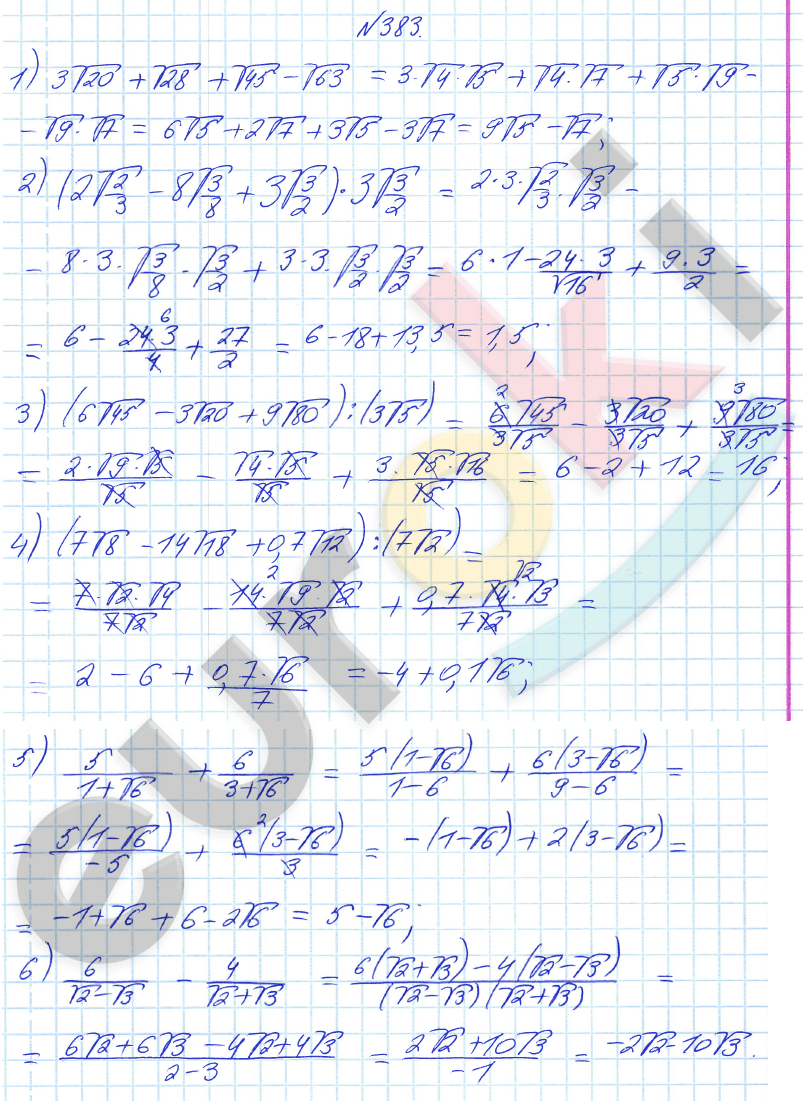 №383.
1) 3√20 + √28 + √45 − √63 = 3·√4·√5 + √4·√7 + √5·√9 −
− √9·√7 = 6√5 + 2√7 + 3√5 − 3√7 = 9√5 − √7;
2) (2√(2/3) − 8√(3/8) + 3√(3/2))·3√(3/2) = 2·3·√(2/3)·√(3/2) −
− 8·3·√(3/8)·√(3/2) + 3·3·√(3/2)·√(3/2) = 6·1 − 24·3/√16 + 9·3/2 =
= 6 − 24·3/4 6 + 27/2 = 6 − 18 + 13,5 = 1,5;
3) (6√45 − 3√20 + 9√80):(3√5) = 6 2 √45/3√5 − 3√20/3√5 + 9 3 √80/3√5 =
= 2·√9·√5/√5 − √4·√5/√5 + 3·√5·√16/√5 = 6 − 2 + 12 = 16;
4) (7√8 − 14√18 + 0,7√12):(7√2) =
= 7·√2·√4/7√2 − 14 2·√9·√2/7√2 + 0,7·√4 √2·√3/7√2 =
= 2 − 6 + 0,7·√6/7 = −4 + 0,1√6;
5) 5/(1+√6) + 6/(3+√6) = 5(1−√6)/(1−6) + 6(3−√6)/(9−6) =
= 5(1−√6)/−5 + 6 2 (3−√6)/3 = −(1−√6) + 2(3−√6) =
= −1 + √6 + 6 − 2√6 = 5 − √6;
6) 6/(√2−√3) − 4/(√2+√3) = (6(√2+√3) − 4(√2−√3))/((√2−√3)(√2+√3)) =
= (6√2 + 6√3 − 4√2 + 4√3)/(2−3) = (2√2 + 10√3)/−1 = −2√2 − 10√3.
euroki